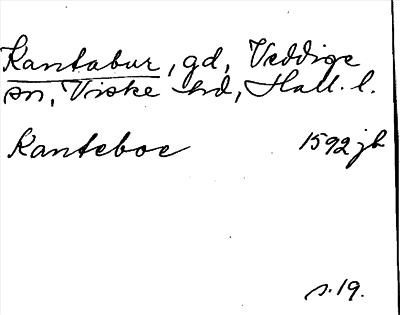 Kantabur, gd, Veddige
sn, Viske hd, Hall. l.
Kanteboe 1592 jb
s. 19.